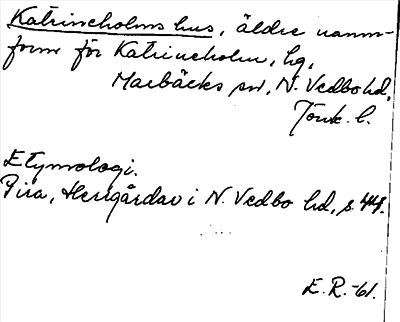 Katrineholms hus, äldre namn-
form för Katrineholm, hg,
Marbäcks sn, N. Vedbo hd,
Jönk. l.
Etymologi.
Pira, Herrgårdar i N. Vedbo hd, s 44.
E. R. -61.